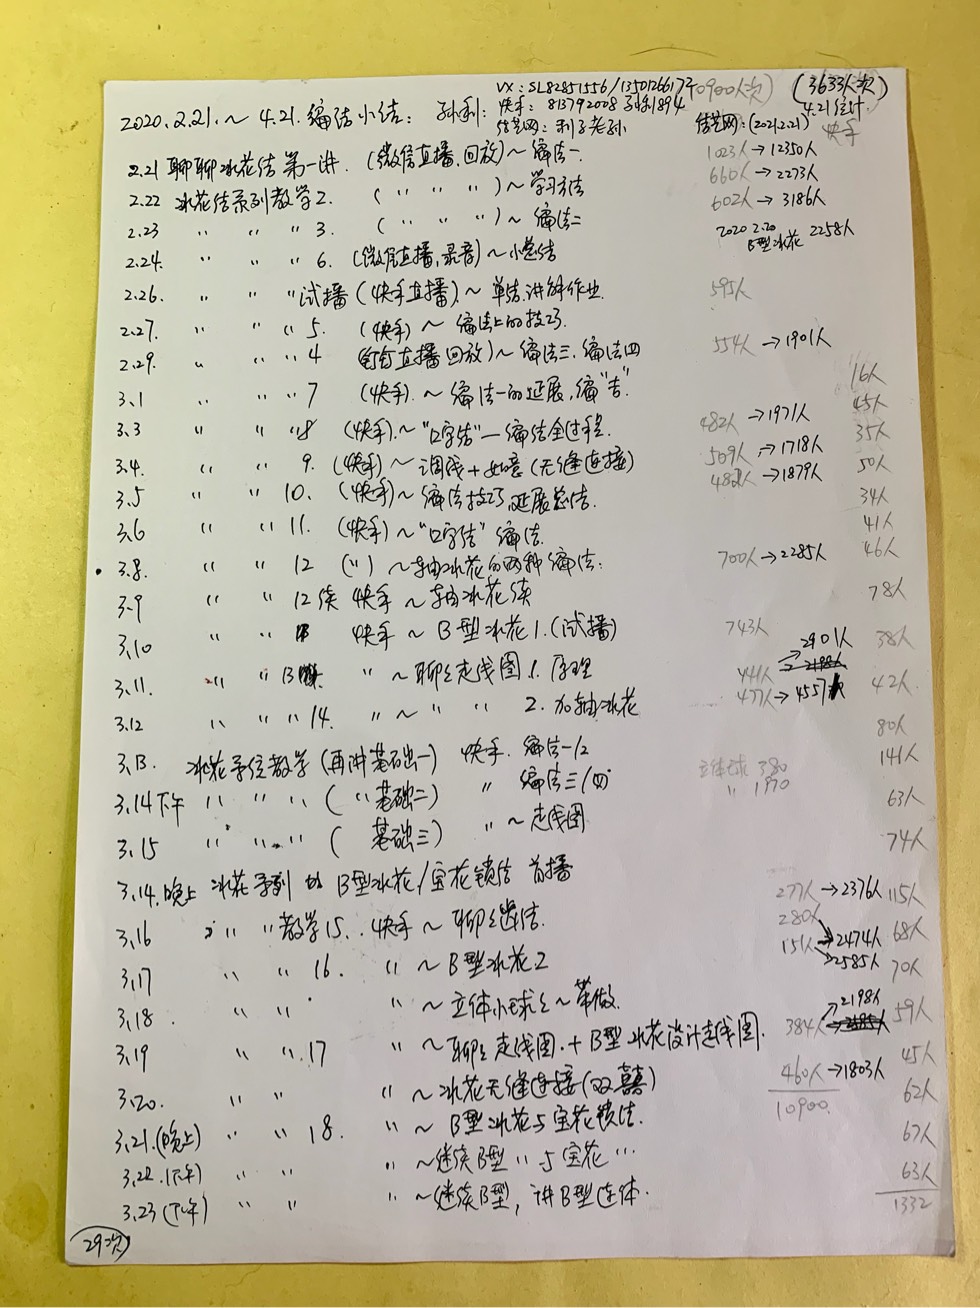 VX: SL82851556/13501266173 (10900人次) (3633人次)
2020.2.21.～4.21.编结小结: 孙利: 快手: 813792008 孙利1894 4.21统计
结艺网: 利子老孙 结艺网:(2021.2.21) 快手
2.21 聊聊冰花结 第一讲. (微信直播,回放)～编法一. 1023人→12350人
2.22 冰花结系列教学2. ( " " " )～学习方法 660人→2273人
2.23 " " " 3. ( " " " )～编法二 602人→3186人
2.24. " " " 6. (微信直播,录音)～小总结 2020 2.20 B型冰花 2258人
2.26. " " "试播 (快手直播)～单结.讲解作业. 595人
2.27. " " " 5. (快手)～编法上的技巧.
2.29. " " " 4 直播回放)～编法三.编法四 554人→1901人
3.1 " " " 7 (快手).～编法一的延展,编"吉". 16人
3.3 " " " 8 (快手).～"口字结"一编结全过程. 482人→1971人 45人
3.4. " " 9. (快手)～调线+如意(无缝连接) 509人→1718人 35人
3.5 " " 10. (快手)～编法技巧,延展总结. 482人→1879人 50人
3.6 " " 11. (快手)～"口字结"编法. 34人
3.8. " " 12 (")～轴冰花的两种编法. 700人→2285人 41人
46人
3.9 " " 12续 快手～轴冰花续 78人
3.10 " " 快手～B型冰花1.(试播) 743人
3.11. " " 13 "～聊聊走线图1.原理 441人→2901人 38人
3.12 " " " 14. "～" " 2.加轴冰花 477人→4557人 42人
80人
3.13. 冰花系统教学(再讲基础一) 快手. 编法一/二 立体球 380 141人
3.14下午 " " " ( " 基础二) " 编法三/四 " 1970 63人
3.15 " " " ( 基础三) "～走线图 74人
3.14.晚上 冰花系列 B型冰花/宝花锁结 首播 277人→2376人 115人
3.16 " " "教学15.. 快手～聊聊结. 280人→2474人 68人
3.17 " " 16. "～B型冰花2 151人→2585人 70人
3.18 " " "～立体小球～带做. 2198人 59人
3.19 " " " 17 "～聊聊走线图.+B型冰花设计走线图. 384人 45人
3.20. " " "～冰花无缝连接(双囍) 460人→1803人 62人
3.21.(晚上) " " 18. "～B型冰花与宝花锁结. 10900. 67人
3.22.(下午) " " "～继续B型"与宝花… 63人
3.23(下午) " " "～继续B型,讲B型连体. 1332
29次